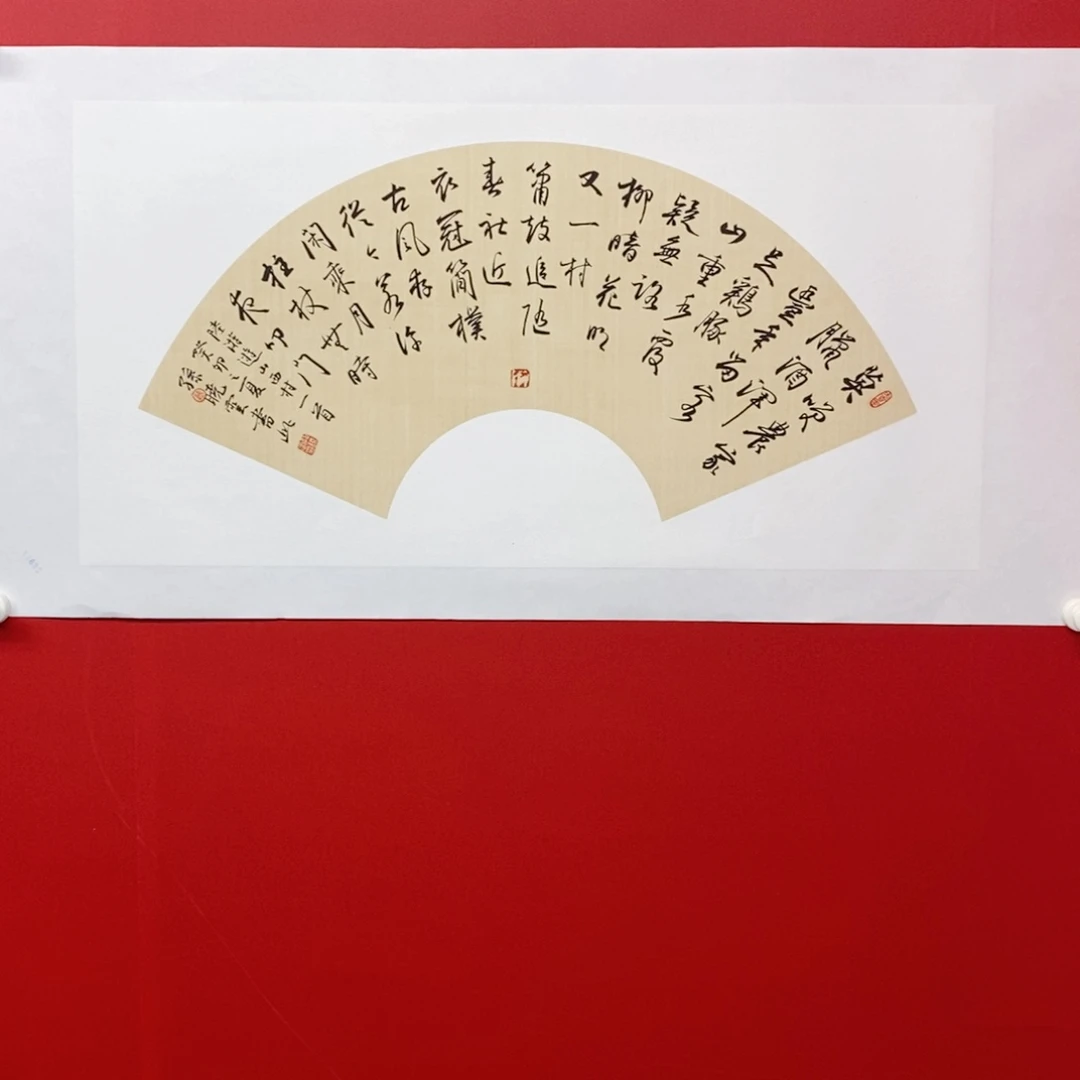 莫笑農家
臘酒渾
豐年留客
足鷄豚
山重水複
疑無路
柳暗花明
又一村
簫鼓追隨
春社近
衣冠簡樸
古風存
從今若許
閑乘月
拄杖無時
夜叩門
陸游遊山西村一首
癸卯之夏
孫曉雲書此